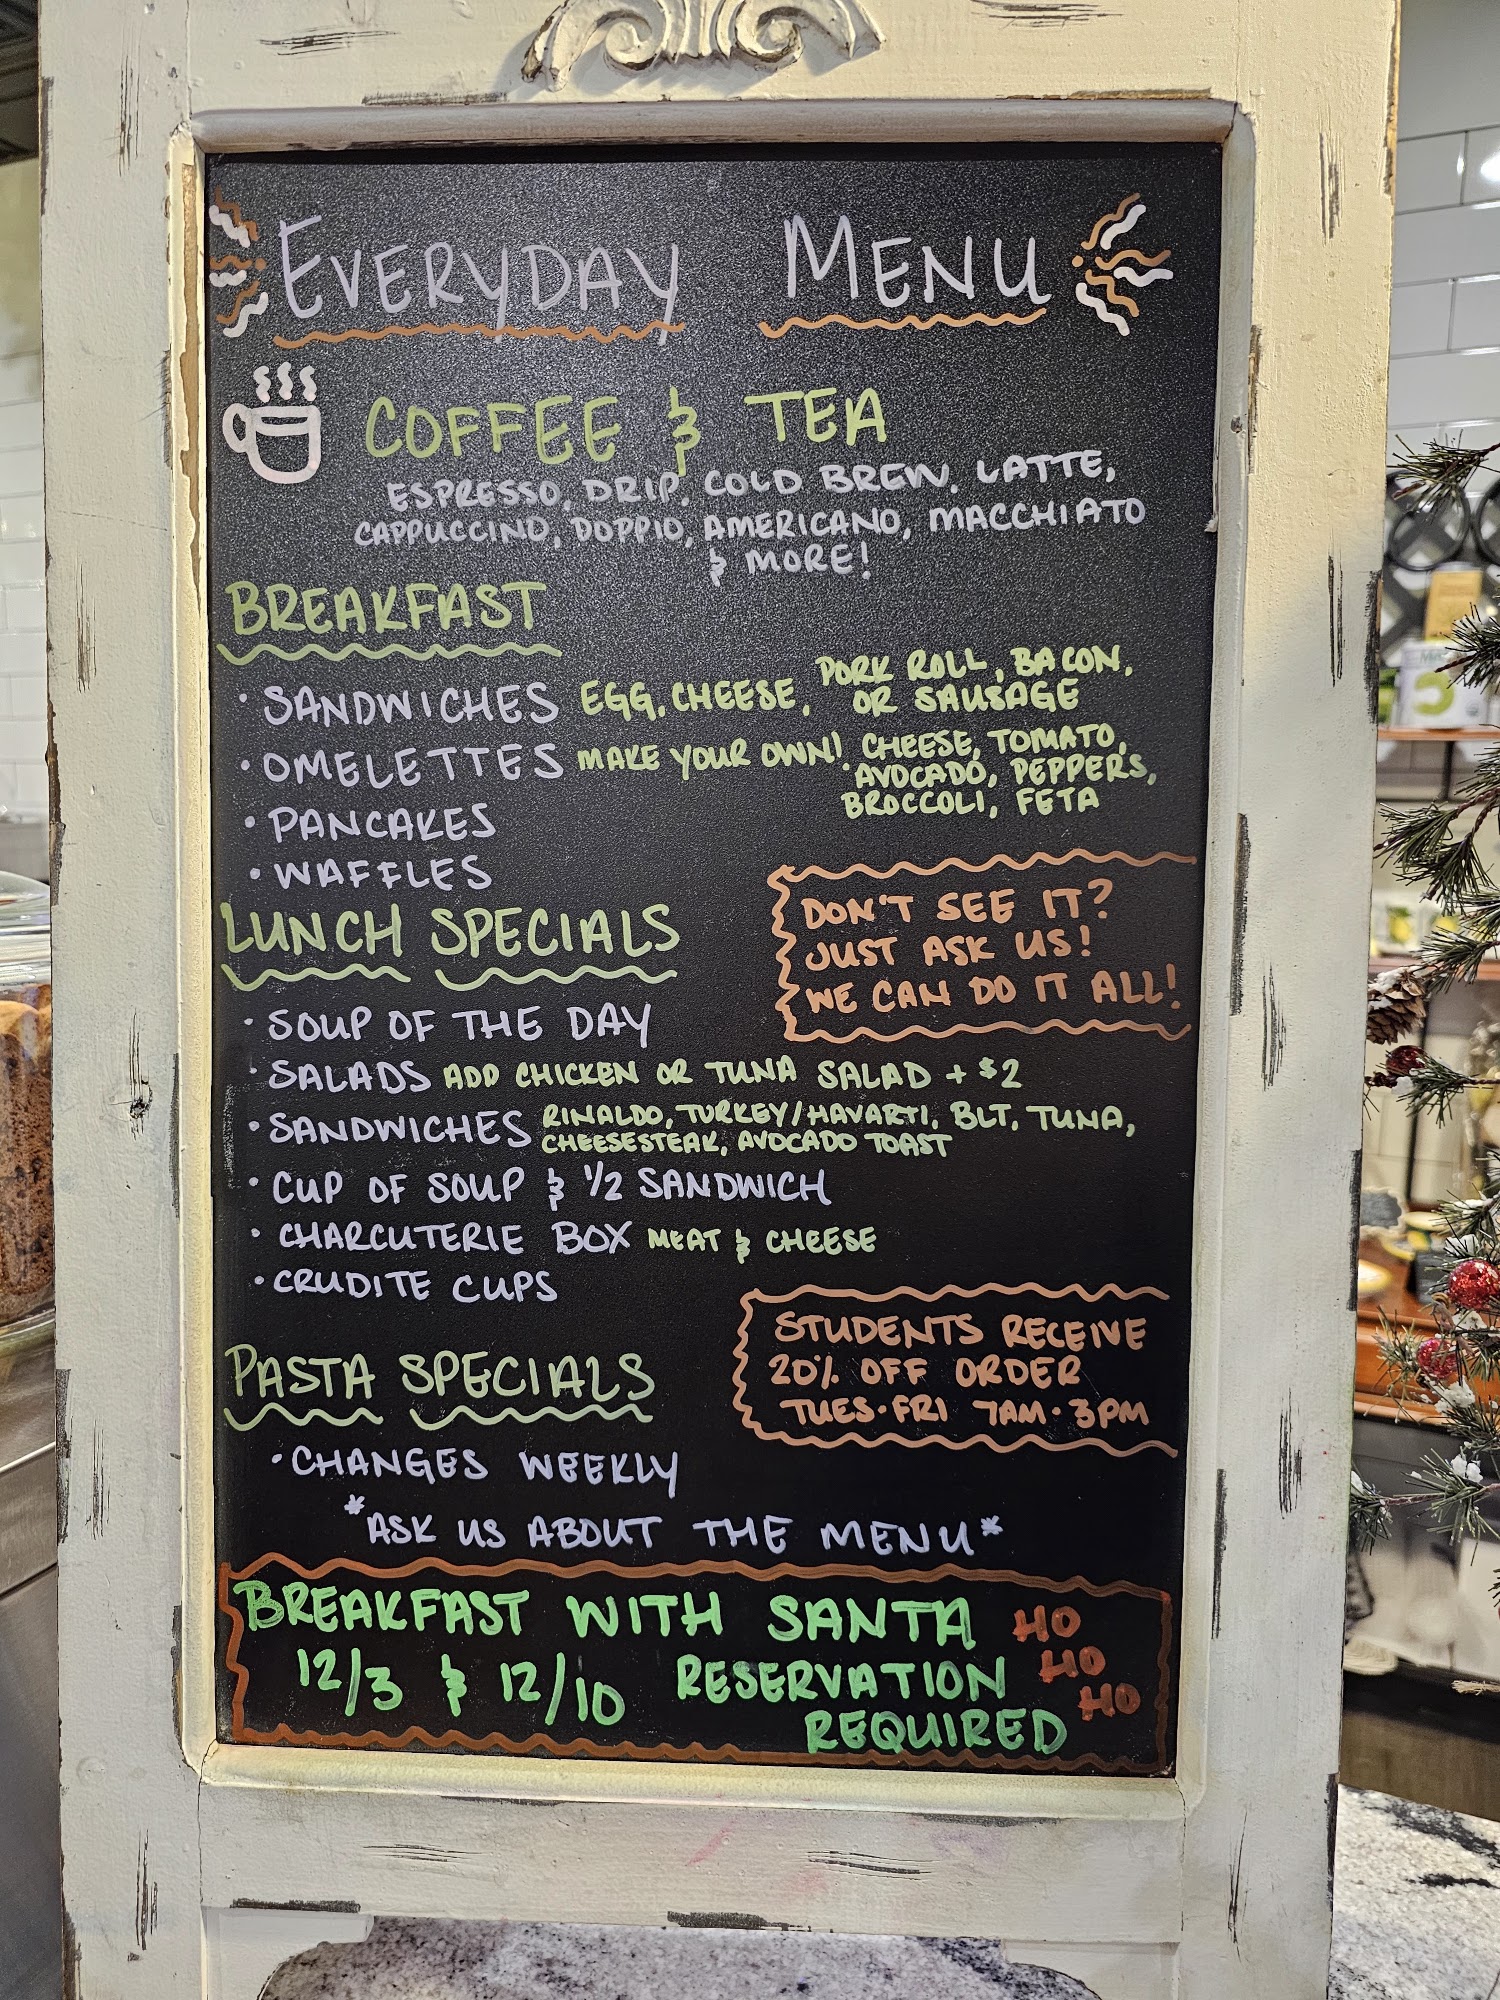 EVERYDAY MENU
COFFEE & TEA
ESPRESSO, DRIP, COLD BREW, LATTE,
CAPPUCCINO, DOPPIO, AMERICANO, MACCHIATO
& MORE!
BREAKFAST
• SANDWICHES EGG, CHEESE, PORK ROLL, BACON,
OR SAUSAGE
• OMELETTES MAKE YOUR OWN! CHEESE, TOMATO,
AVOCADO, PEPPERS,
BROCCOLI, FETA
• PANCAKES
• WAFFLES
DON'T SEE IT?
JUST ASK US!
WE CAN DO IT ALL!
LUNCH SPECIALS
• SOUP OF THE DAY
• SALADS ADD CHICKEN OR TUNA SALAD + $2
• SANDWICHES RINALDO, TURKEY/HAVARTI, BLT, TUNA,
CHEESESTEAK, AVOCADO TOAST
• CUP OF SOUP & 1/2 SANDWICH
• CHARCUTERIE BOX MEAT & CHEESE
• CRUDITE CUPS
STUDENTS RECEIVE
20% OFF ORDER
TUES-FRI 7AM-3PM
PASTA SPECIALS
• CHANGES WEEKLY
*ASK US ABOUT THE MENU*
BREAKFAST WITH SANTA HO
12/3 & 12/10 RESERVATION HO
REQUIRED HO